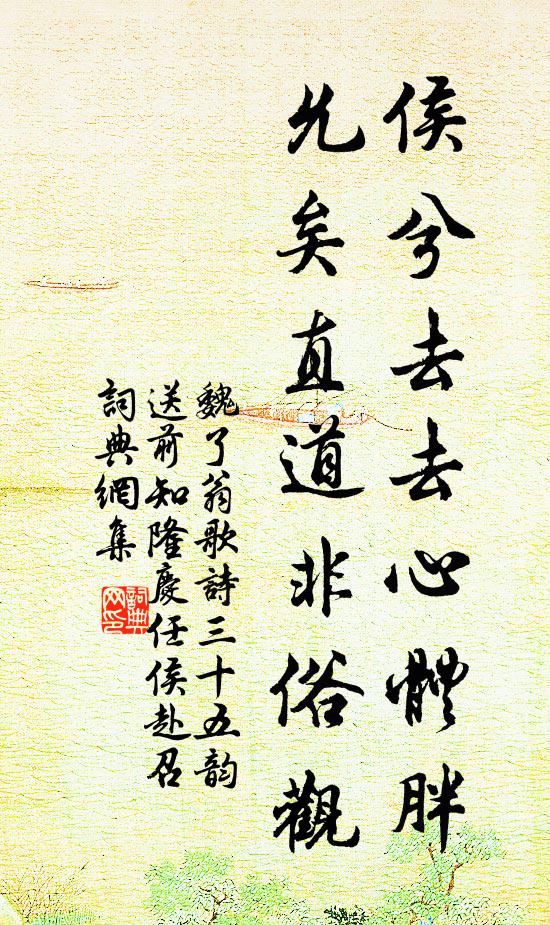 侯兮去去心體胖
允矣直道非俗觀
魏了翁歌詩三十五韵
送前知隆慶任侯赴召
詞典網集
詞典网印